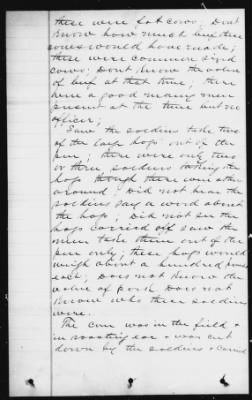 these were fat cows; Dont
Know how much beef these
cows would have made;
these were common sized
cows; Dont know the value
of beef at that time; there
were a good many men
present at the time but no
officer;
Saw the soldiers take two
of the large hogs out of the
pen; there were only two
or three soldiers taking the
hogs though there were others
around. Did not hear the
soldiers say a word about
the hogs; Did not see the
hogs carried off saw the
men take them out of the
pen only; these hogs would
weigh about a hundred pounds
each; Does not Know the
value of pork Does not
Know who these soldiers
were.
The corn was in the field &
in roasting ear & was cut
down by the soldiers & carried